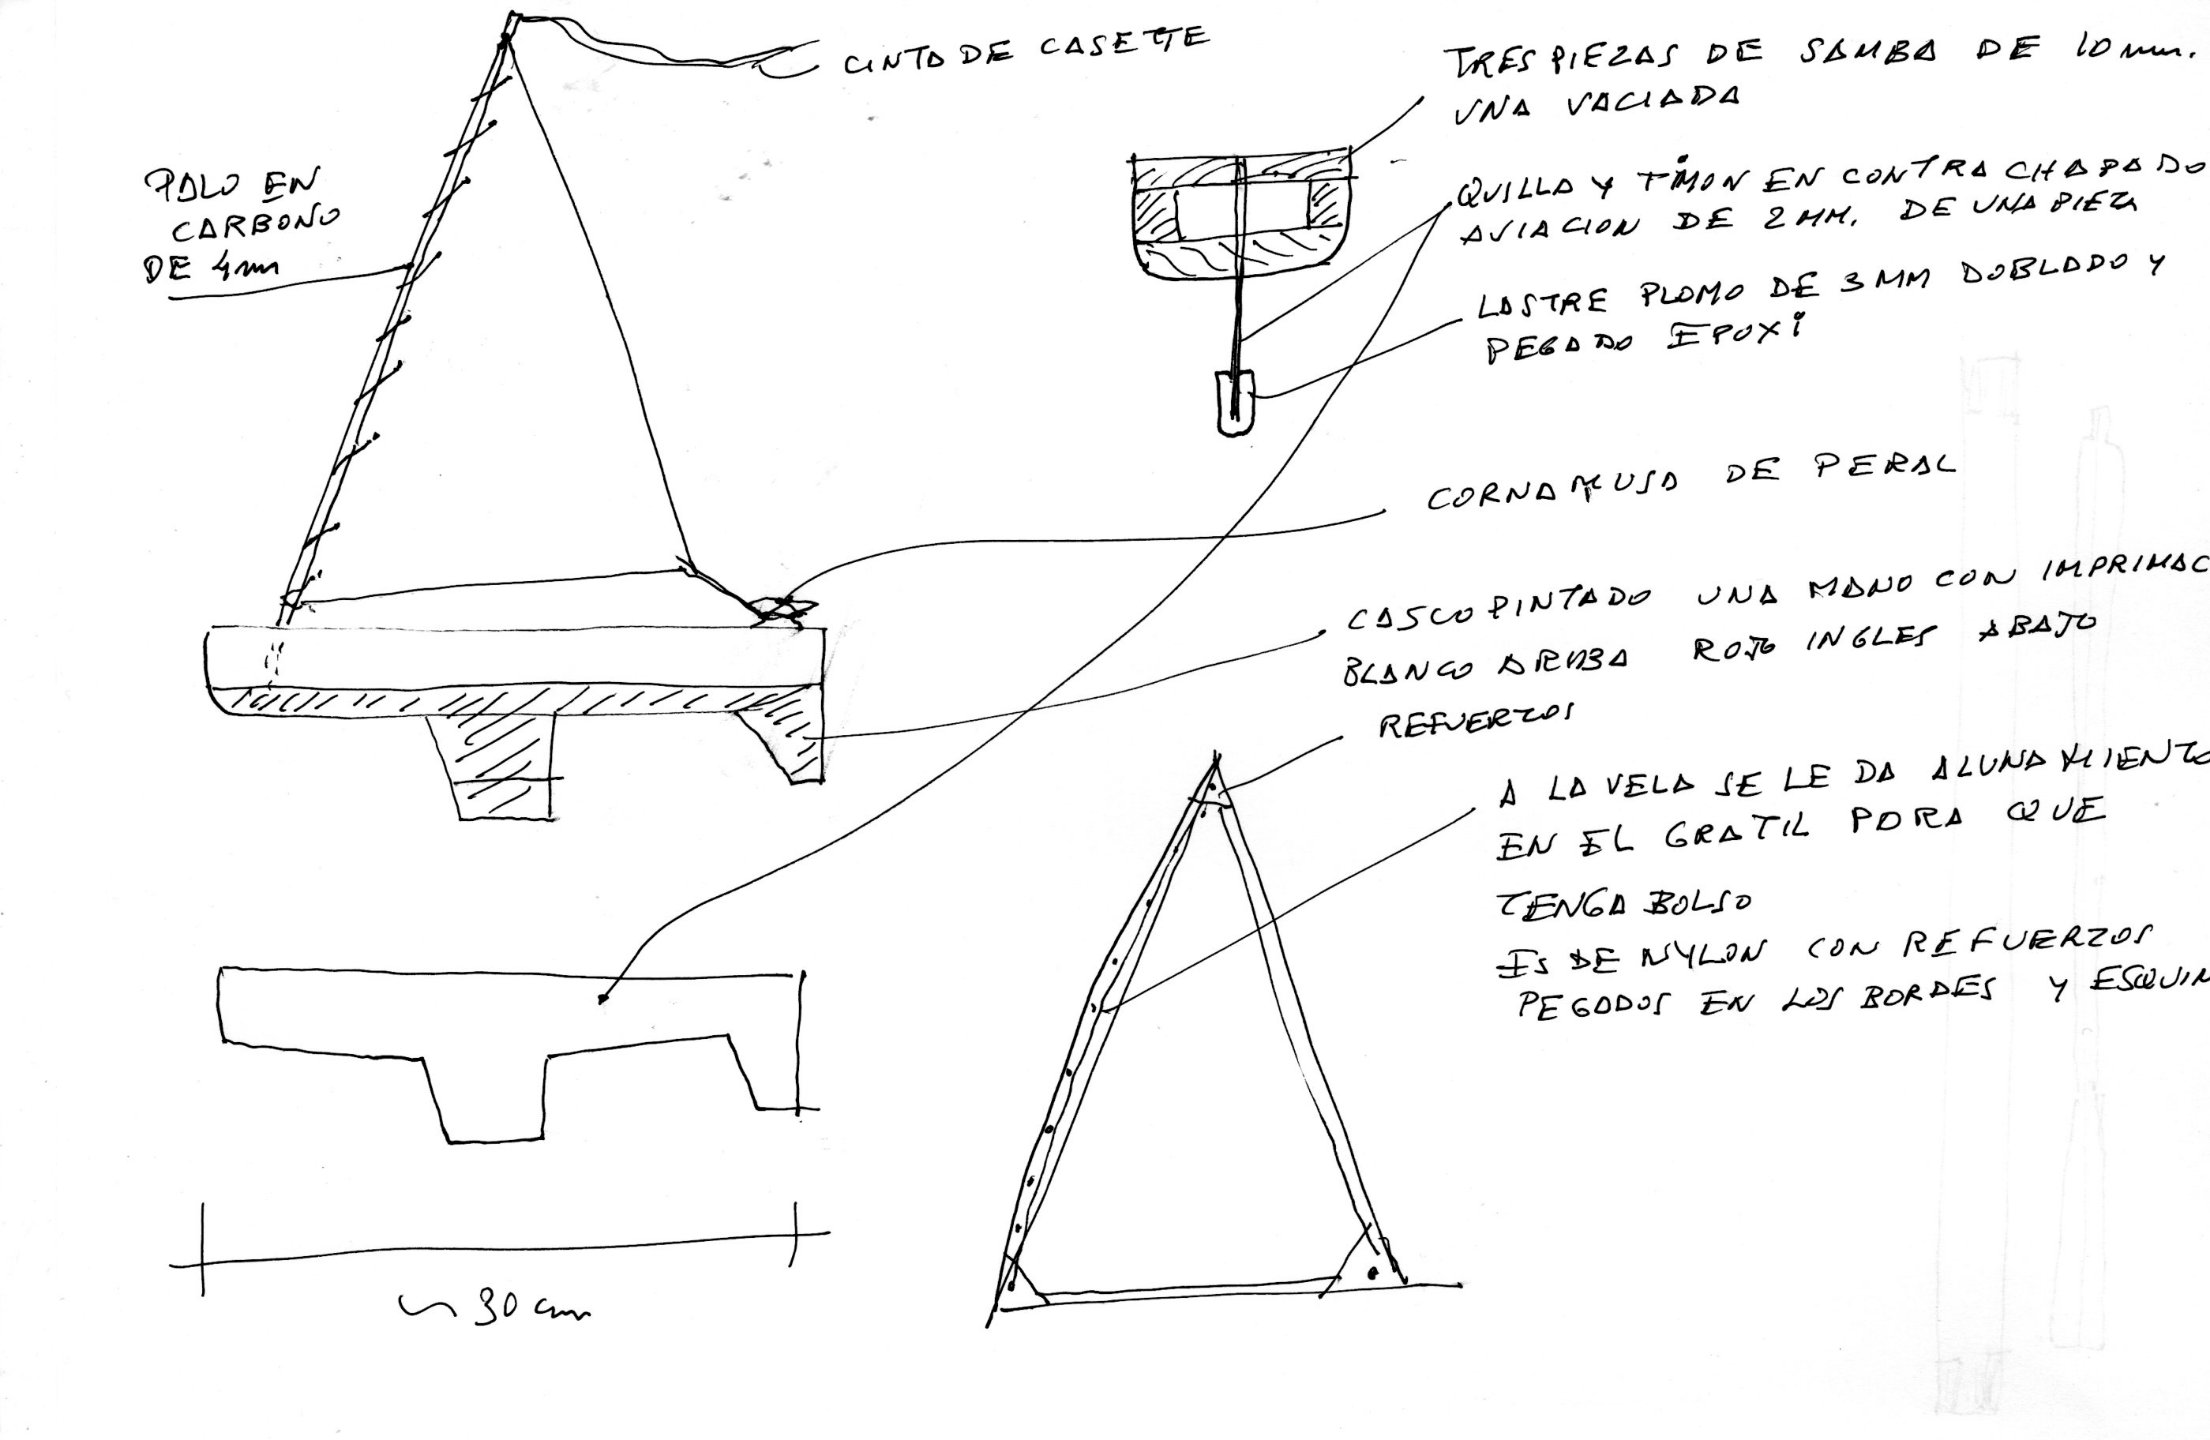 CINTA DE CASETTE
PALO EN
CARBONO
DE 4mm
TRES PIEZAS DE SAMBA DE 10 mm.
UNA VACIADA
QUILLA Y TIMON EN CONTRA CHAPADO
AVIACION DE 2 MM. DE UNA PIEZA
LASTRE PLOMO DE 3 MM DOBLADO Y
PEGADO EPOXI
CORNAMUSA DE PERAL
CASCO PINTADO UNA MANO CON IMPRIMAC
BLANCO ARRIBA ROJO INGLES ABAJO
REFUERZOS
A LA VELA SE LE DA ALUNAMIENTO
EN EL GRATIL PARA QUE
TENGA BOLSO
ES DE NYLON CON REFUERZOS
PEGADOS EN LOS BORDES Y ESQUIN
~ 30 cm